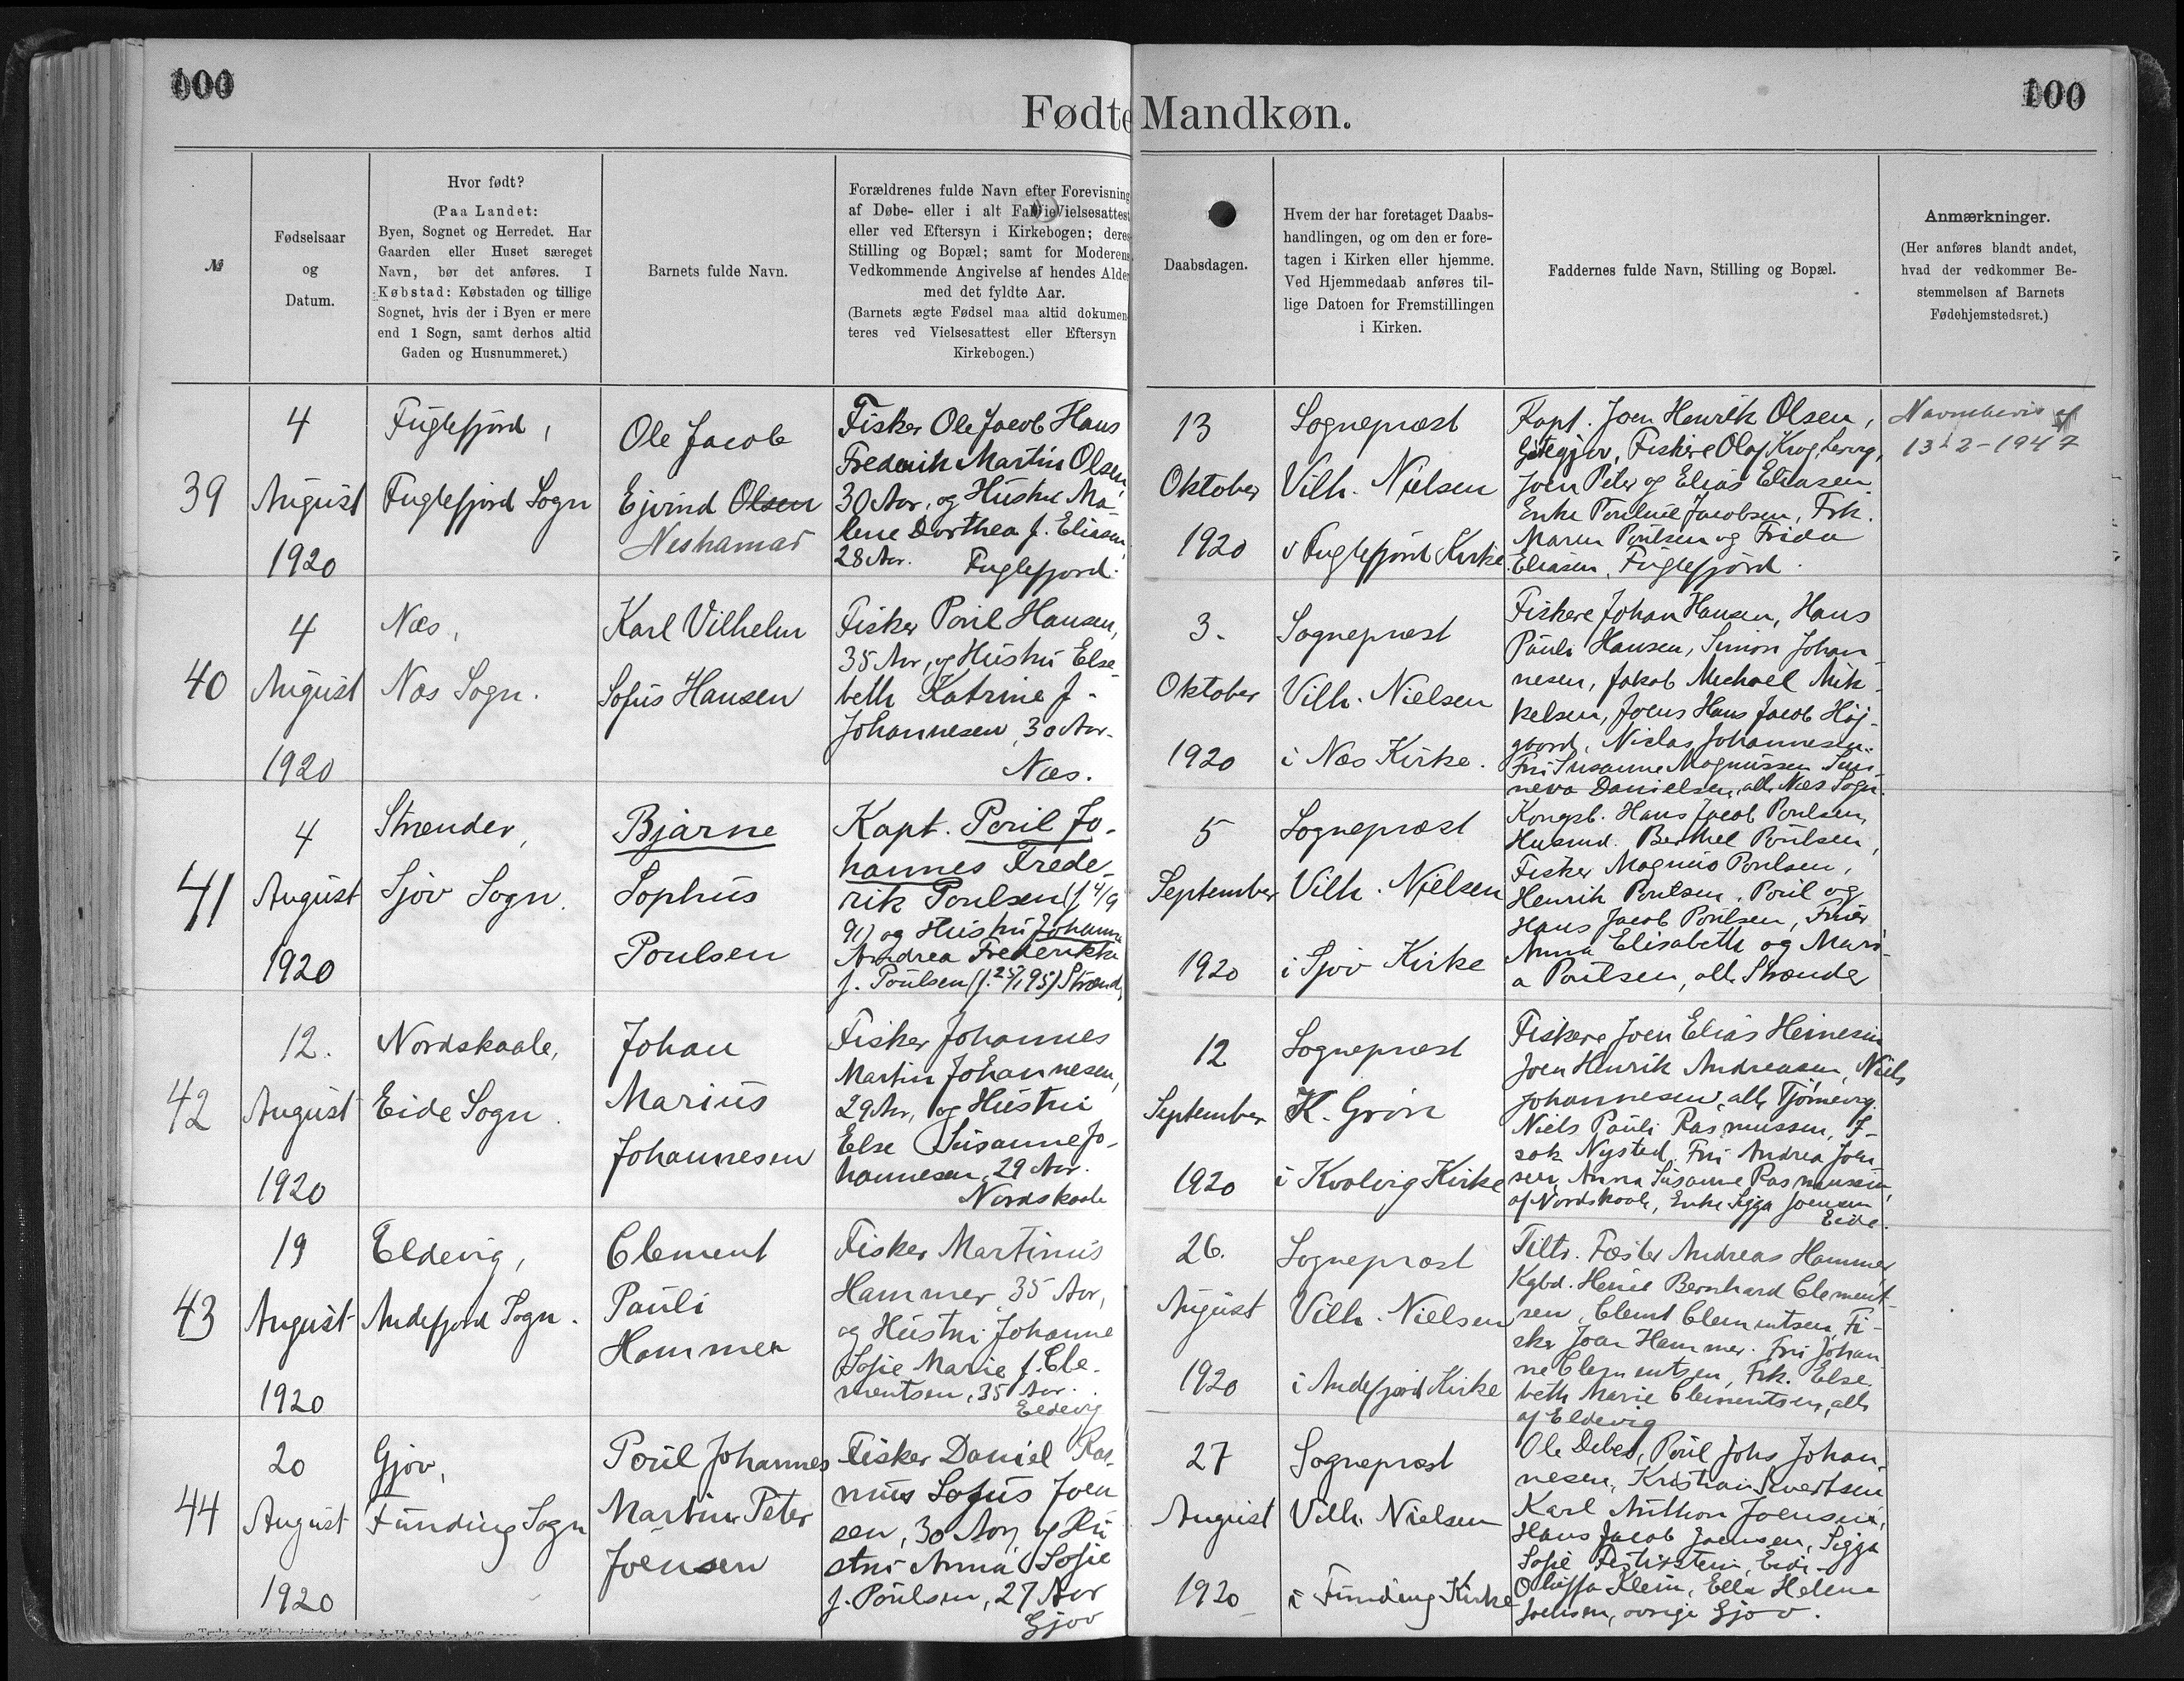 100
100
Fødte Mandkøn.
№
Fødselsaar
og
Datum.
Hvor født?
(Paa Landet:
Byen, Sognet og Herredet. Har
Gaarden eller Huset særeget
Navn, bør det anføres. I
Købstad: Købstaden og tillige
Sognet, hvis der i Byen er mere
end 1 Sogn, samt derhos altid
Gaden og Husnummeret.)
Barnets fulde Navn.
Forældrenes fulde Navn efter Forevisning
af Døbe- eller i alt Fald Vielsesattest
eller ved Eftersyn i Kirkebogen; deres
Stilling og Bopæl; samt for Moderens
Vedkommende Angivelse af hendes Alder
med det fyldte Aar.
(Barnets ægte Fødsel maa altid dokumen-
teres ved Vielsesattest eller Eftersyn
Kirkebogen.)
Daabsdagen.
Hvem der har foretaget Daabs-
handlingen, og om den er fore-
tagen i Kirken eller hjemme.
Ved Hjemmedaab anføres til-
lige Datoen for Fremstillingen
i Kirken.
Faddernes fulde Navn, Stilling og Bopæl.
Anmærkninger.
(Her anføres blandt andet,
hvad der vedkommer Be-
stemmelsen af Barnets
Fødehjemstedsret.)
39
4
August
1920
Fuglefjord,
Fuglefjord Sogn
Ole Jacob
Ejvind Olsen
Neshamar
Fisker Ole Jacob Hans
Frederik Martin Olsen,
30 Aar, og Hustru Ma-
lene Dorthea f. Eliasen,
28 Aar. Fuglefjord.
13
Oktober
1920
Sognepræst
Vilh. Nielsen
i Fuglefjord Kirke
Kapt. Joen Henrik Olsen,
Gøtegjov, Fiskere Olaf Krog, Lervig,
Joen Peter og Elias Eliasen.
Enke Jacobsen, Frk.
Maren Poulsen og Frida
Eliasen, Fuglefjord.
Navnebevis af
13/2-1947
40
4
August
1920
Næs,
Næs Sogn.
Karl Vilhelm
Sofus Hansen
Fisker Poul Hansen,
35 Aar, og Hustru Else-
beth Katrine f.
Johannesen, 30 Aar.
Næs.
3.
Oktober
1920
Sognepræst
Vilh. Nielsen
i Næs Kirke.
Fiskere Johan Hansen, Hans
Pauli Hansen, Simon Johan-
nesen, Jakob Michael Mik-
kelsen, Joens Hans Jacob Høj-
gaard, Niclas Johannesen.
Fru Susanne Magnussen, Sun-
neva Danielsen, alle Næs Sogn.
41
4
August
1920
Strænder,
Sjov Sogn.
Bjarne
Sophus
Poulsen
Kapt. Poul Jo-
hannes Frede-
rik Poulsen (f. 4/9
91) og Hustru Johanna
Andrea Frederikke
f. Poulsen (f. 25/1 95) Strænd.
5
September
1920
Sognepræst
Vilh. Nielsen
i Sjov Kirke
Kongsb. Hans Jacob Poulsen,
Husmd. Berthel Poulsen,
Fisker Magnus Poulsen,
Henrik Poulsen, Poul og
Hans Jacob Poulsen, Fruer
Anna Elisabeth og Mari-
a Poulsen, alle Strænder
42
12.
August
1920
Nordskaale,
Eide Sogn.
Johan
Marius
Johannesen
Fisker Johannes
Martin Johannesen,
29 Aar, og Hustru
Else Susanne Jo-
hannesen, 29 Aar.
Nordskaale
12
September
1920
Sognepræst
K. Grøn
i Kvalvig Kirke
Fiskere Joen Elias Heinesen
Joen Henrik Andreasen, Niels
Johannesen, alle Tjørnevig.
Niels Pauli Rasmussen, I-
sak Nysted, Fru Andrea Joen-
sen, Anna Susanne Rasmussen,
af Nordskaale, Enke Sigga Joensen
Eide.
43
19
August
1920
Eldevig,
Andefjord Sogn.
Clement
Pauli
Hammer
Fisker Martinus
Hammer, 35 Aar,
og Hustru Johanne
Sofie Marie f. Cle-
mentsen, 35 Aar.
Eldevig
26.
August
1920
Sognepræst
Vilh. Nielsen
i Andefjord Kirke
Fæster Andreas Hammer,
Kgbd. Bernhard Clement-
sen, Clemt Clementsen, Fi-
sker Joan Hammer. Fru Johan-
ne Clementsen, Frk. Else-
beth Marie Clementsen, alle
af Eldevig
44
20
August
1920
Gjov,
Funding Sogn
Poul Johannes
Martin Peter
Joensen
Fisker Daniel Ras-
mus Sofus Joen
sen, 30 Aar, og Hu
stru Anna Sofie
f. Poulsen, 27 Aar
Gjov
27
August
1920
Sognepræst
Vilh. Nielsen
i Funding Kirke
Ole Debes, Poul Johs Johan-
nesen, Kristian Sivertsen
Karl Anthon Joensen,
Hans Jacob Joensen, Sigga
Sofie Eide.
Klein, Ella Helena
Joensen, øvrige Gjov.